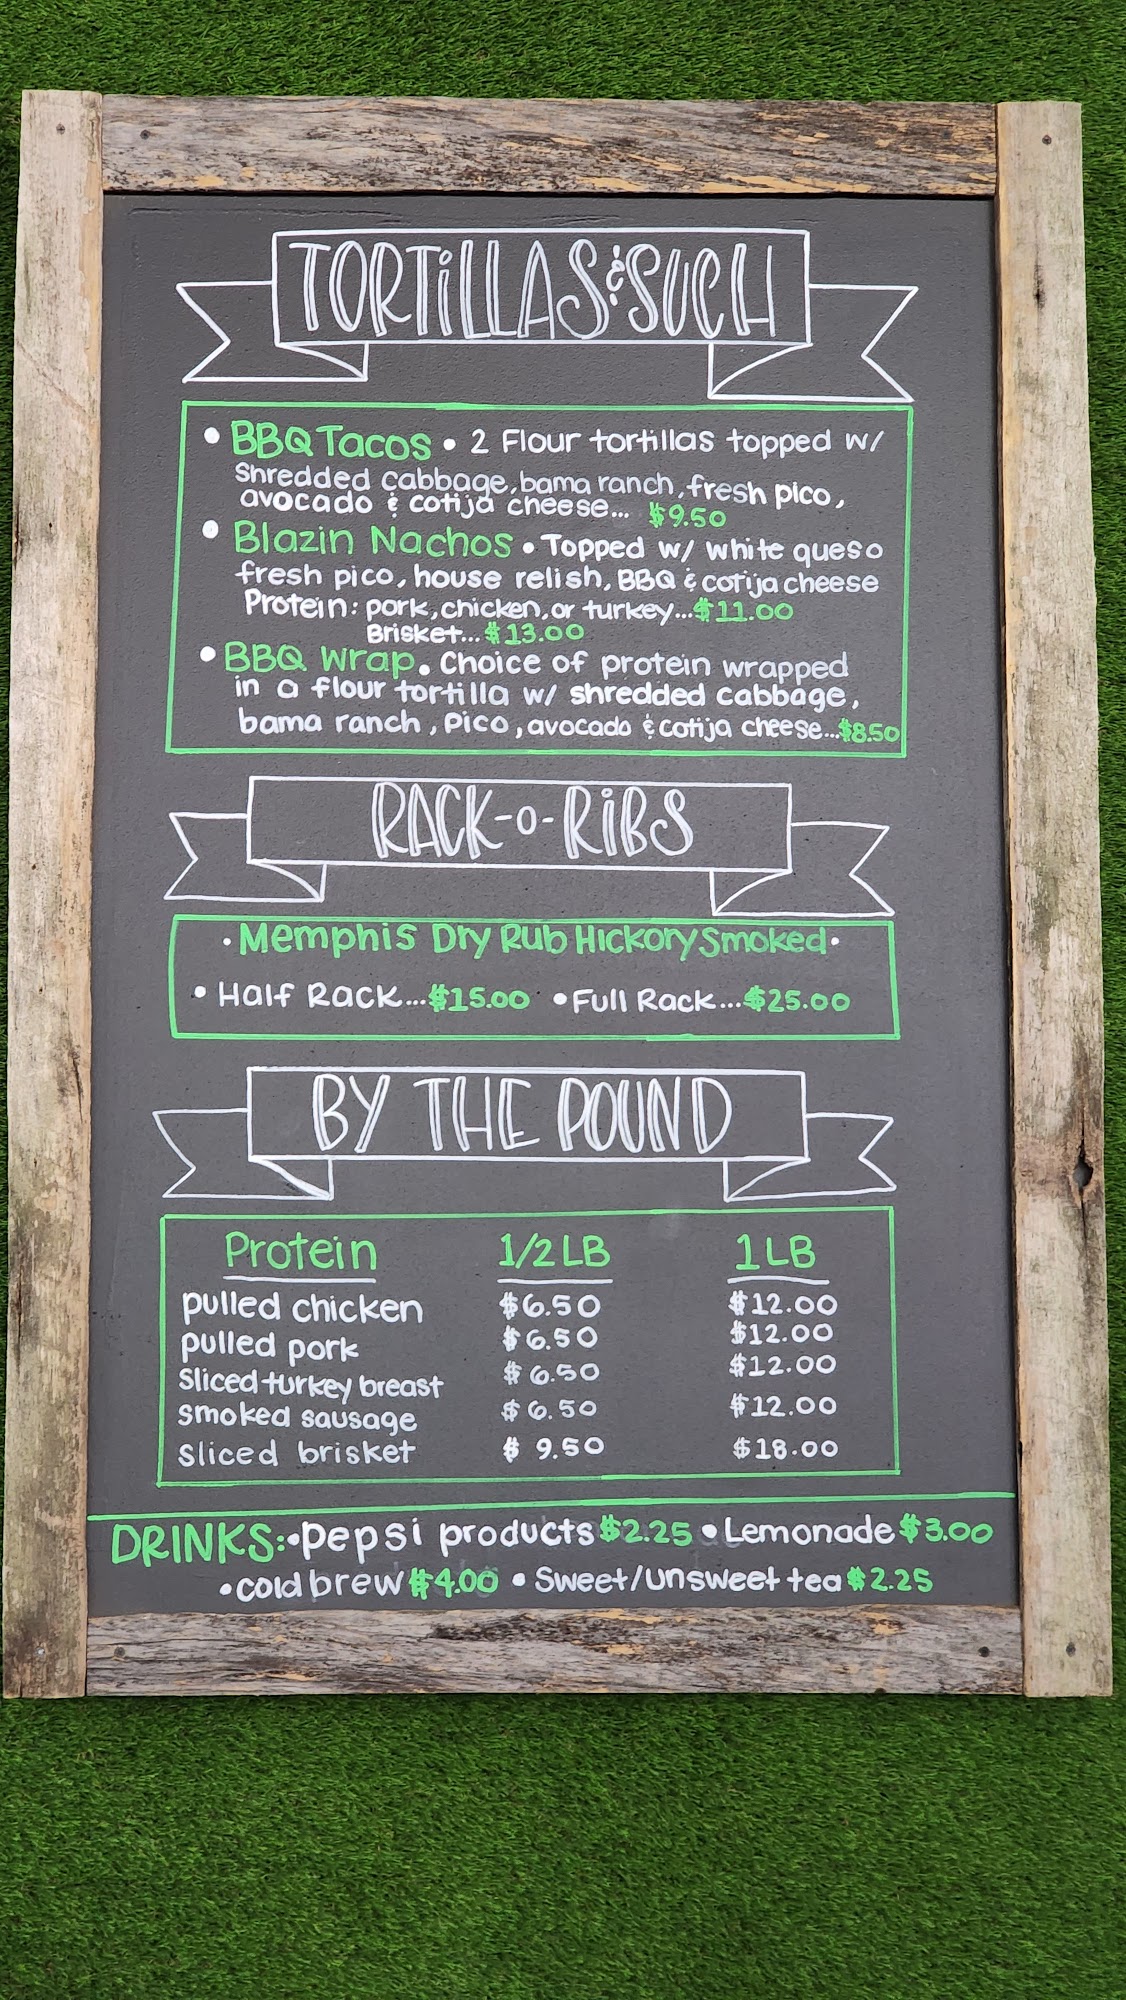 TORTILLAS & SUCH
• BBQ Tacos • 2 Flour tortillas topped w/
Shredded cabbage, bama ranch, fresh pico,
avocado & cotija cheese... $9.50
• Blazin Nachos • Topped w/ white queso
fresh pico, house relish, BBQ & cotija cheese
Protein: pork, chicken, or turkey... $11.00
Brisket... $13.00
• BBQ Wrap. Choice of protein wrapped
in a flour tortilla w/ shredded cabbage,
bama ranch, Pico, avocado & cotija cheese... $8.50
RACK-O-RIBS
• Memphis Dry Rub Hickory Smoked •
• Half Rack... $15.00 • Full Rack... $25.00
BY THE POUND
Protein 1/2 LB 1 LB
pulled chicken $6.50 $12.00
pulled pork $6.50 $12.00
Sliced turkey breast $6.50 $12.00
smoked sausage $6.50 $12.00
Sliced brisket $9.50 $18.00
DRINKS: • pepsi products $2.25 • Lemonade $3.00
• cold brew $4.00 • Sweet/unsweet tea $2.25